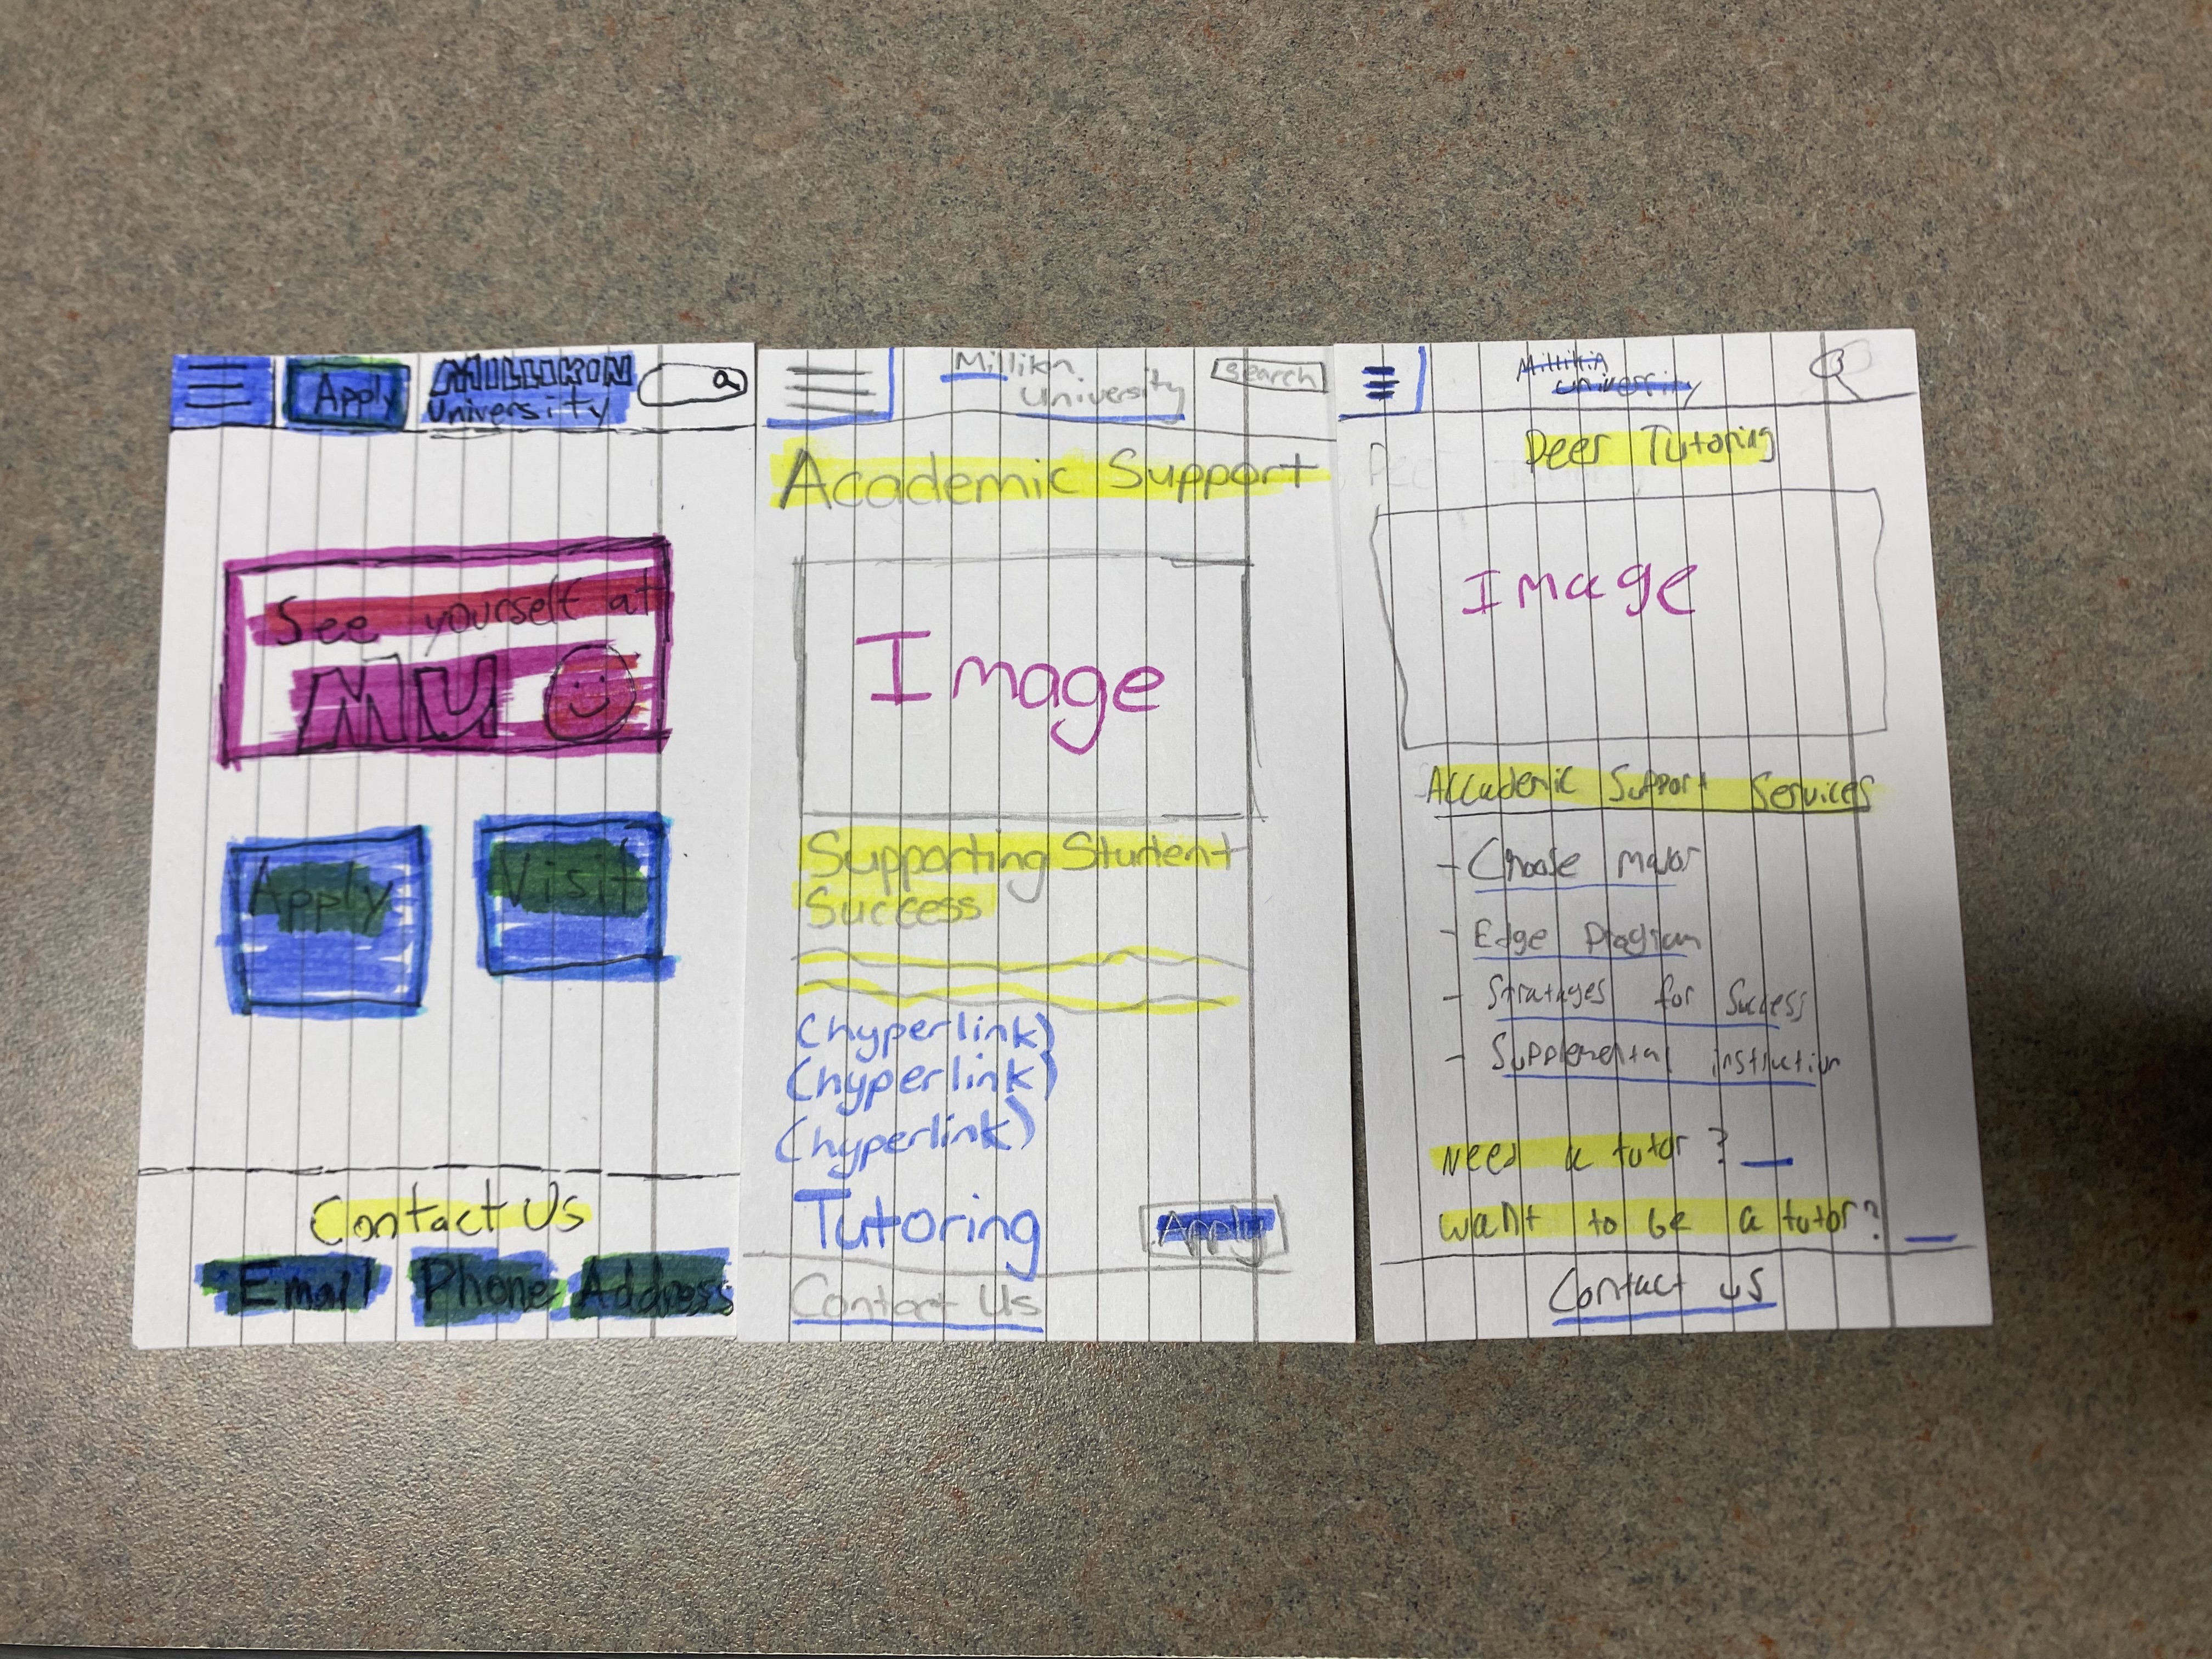 Apply
MILLIKIN
University
See yourself at
MU
Apply
Visit
Contact Us
Email Phone Address
Millikin
University
Search
Academic Support
Image
Supporting Student
Success
{hyperlink}
{hyperlink}
{hyperlink}
Tutoring
Apply
Contact Us
Millikin
University
Peer Tutoring
Image
Accademic Support Services
- Choose major
- Edge Program
- Stratages for Success
- Supplemental instruction
Need a tutor?
Want to be a tutor?
Contact us